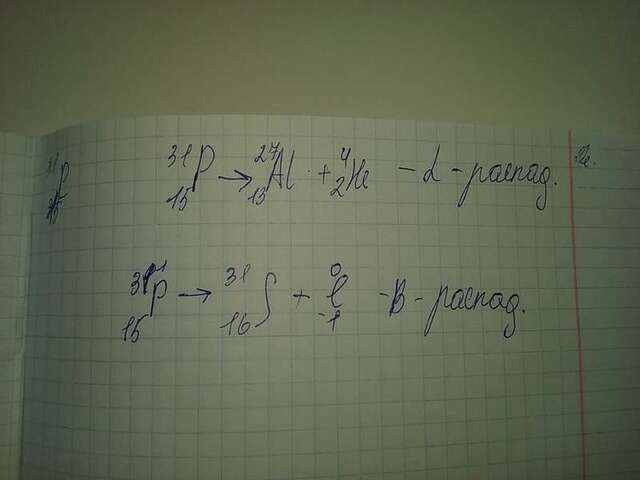 ³¹₁₅P → ²⁷₁₃Al + ⁴₂He - α - распад.
³¹₁₅P → ³¹₁₆S + ⁰₋₁e - β - распад.
³¹P